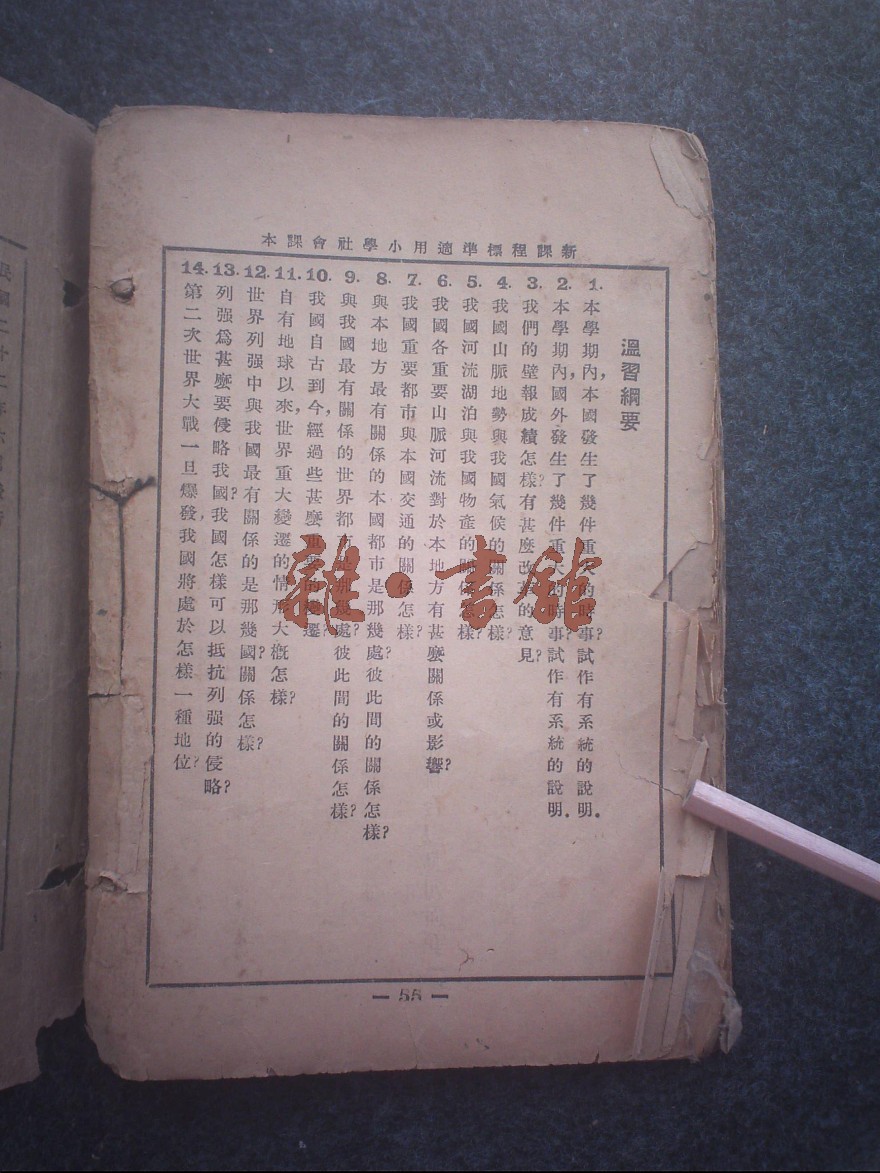 新課程標準適用小學社會課本
溫習綱要
1. 本學期內,本國發生了幾件重大的時事?試作有系統的說明.
2. 本學期內,國外發生了幾件重大的時事?試作有系統的說明.
3. 我們的壁報成績怎樣?有甚麼改革的意見?
4. 我國山脈地勢與我國氣候的關係怎樣?
5. 我國河流湖泊與我國物產的關係怎樣?
6. 我國各重要山脈河流對於本地方有甚麼關係或影響?
7. 我國重要都市與本國交通的關係怎樣?
8. 與本地方最有關係的本國都市是那幾處?彼此間的關係怎樣?
9. 與我國最有關係的世界都市是那幾處?彼此間的關係怎樣?
10. 我國自古到今,經過些甚麼重要的變遷?
11. 自有地球以來,世界重大變遷的情形大概怎樣?
12. 世界列强中與我國最有關係的是那幾國?關係怎樣?
13. 列强爲甚麼要侵略我國?我國怎樣可以抵抗列强的侵略?
14. 第二次世界大戰一旦爆發,我國將處於怎樣一種地位?
— 55 —
雜·書館